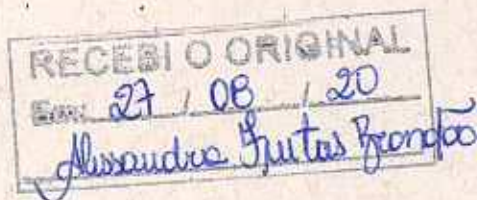 RECEBI O ORIGINAL
Em: 27 / 08 / 20
Alessandra Freitas Brandão